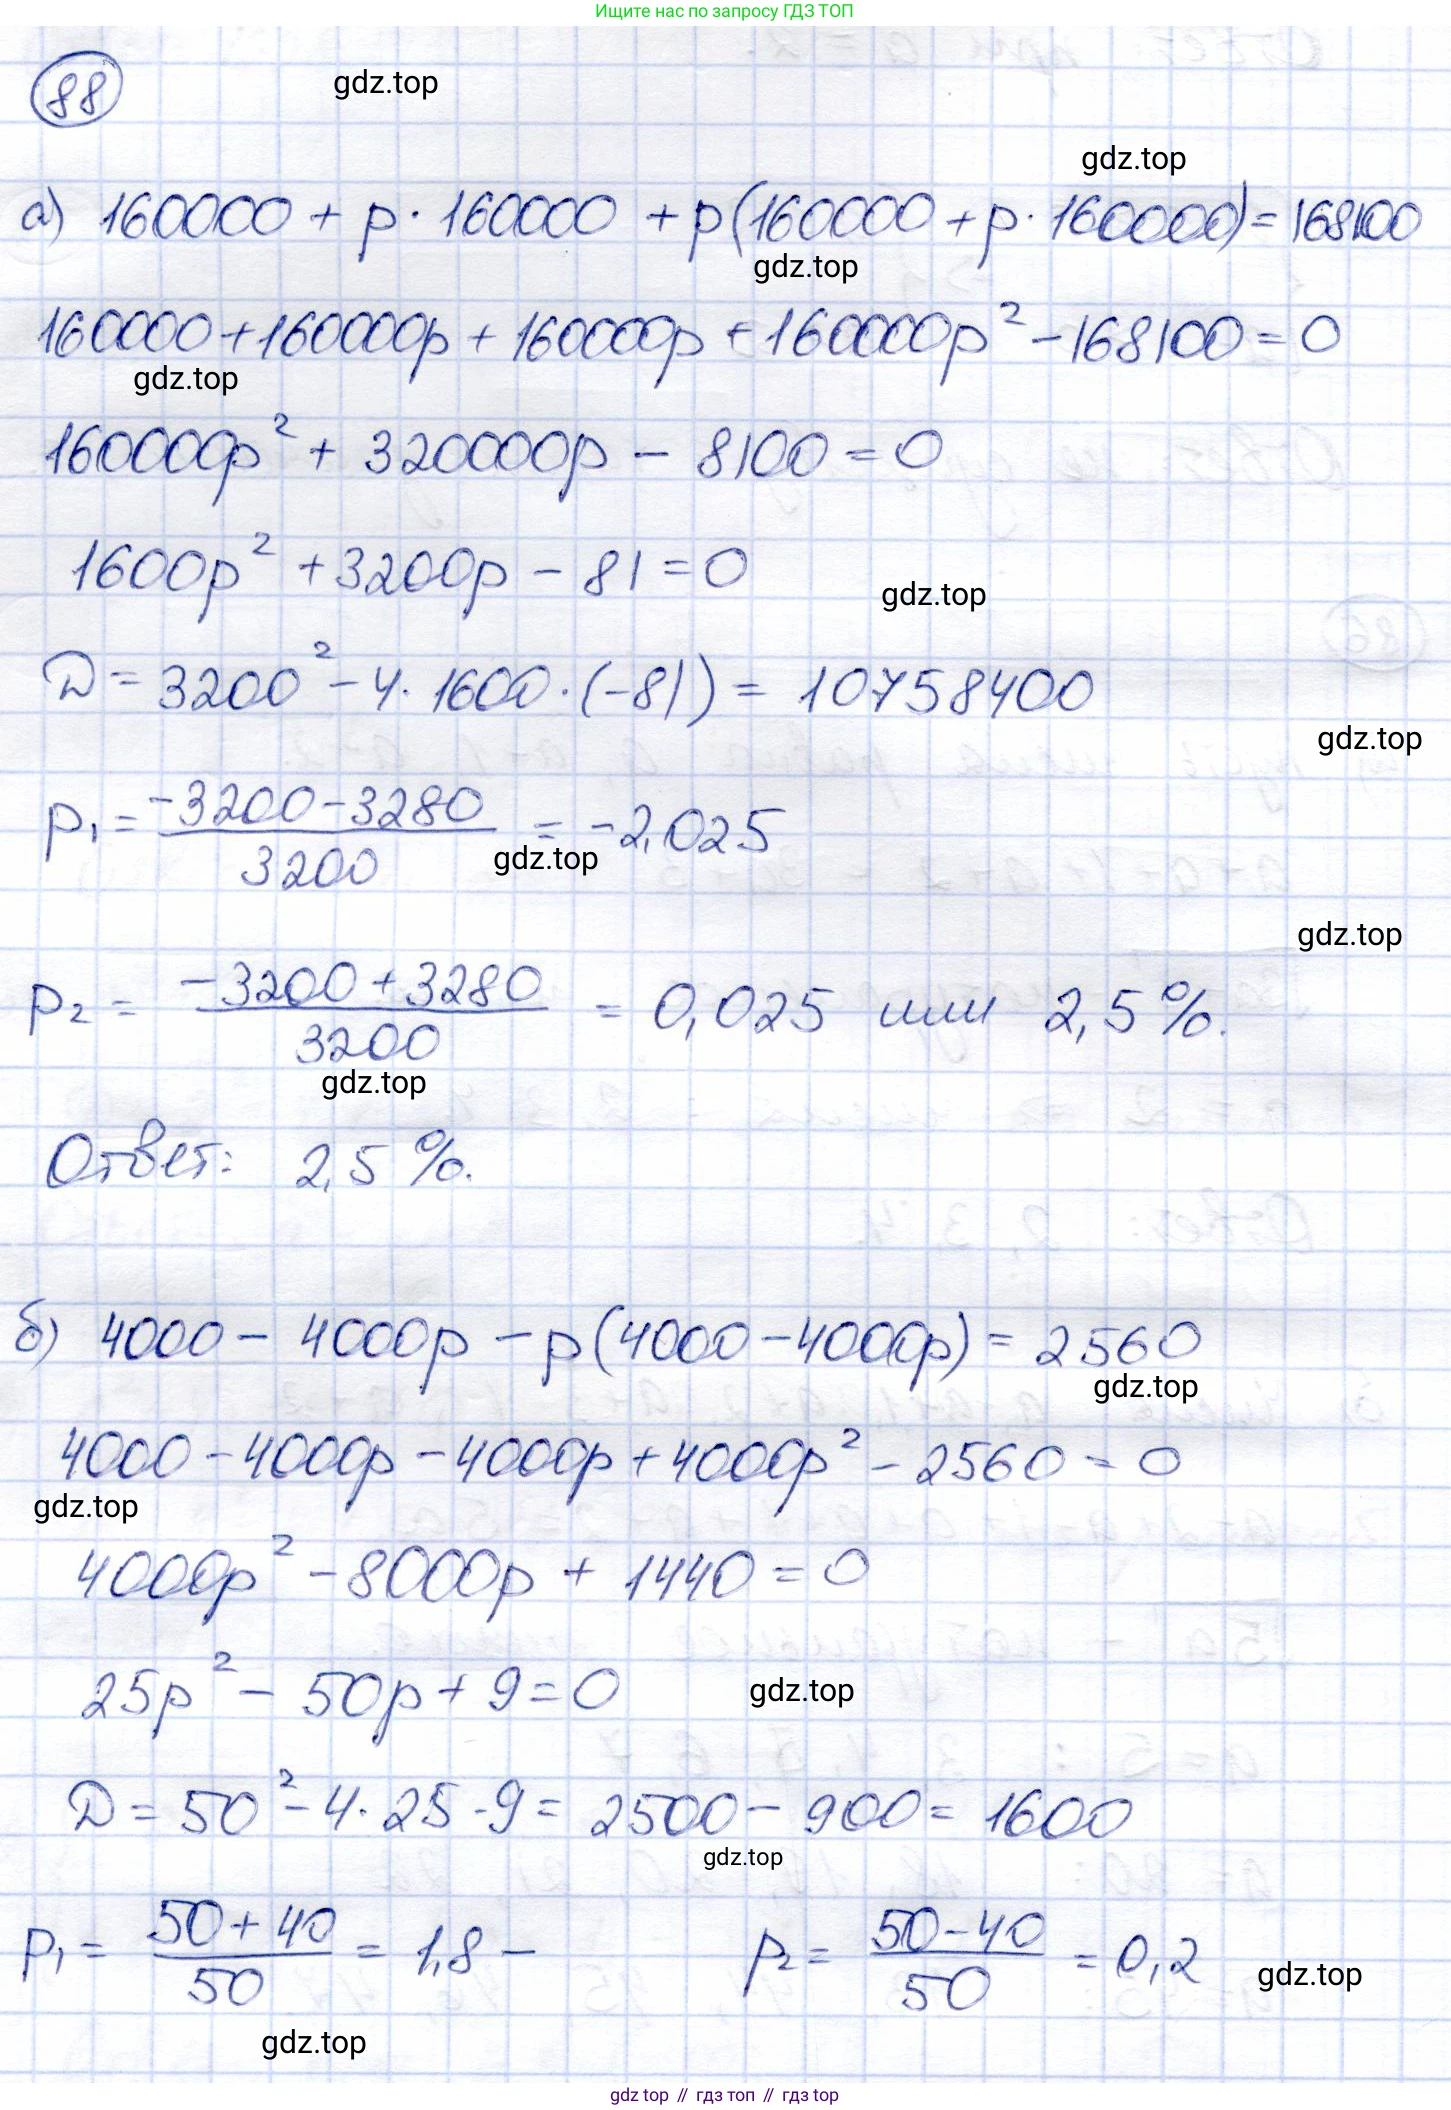 Ищите нас по запросу ГДЗ ТОП
88
gdz.top
gdz.top
а) 160000 + p · 160000 + p(160000 + p · 160000) = 168100
gdz.top
160000 + 160000p + 160000p + 160000p² - 168100 = 0
gdz.top
160000p² + 320000p - 8100 = 0
1600p² + 3200p - 81 = 0
gdz.top
D = 3200² - 4 · 1600 · (-81) = 10758400
gdz.top
p₁ = (-3200 - 3280)/3200 = -2,025
gdz.top
gdz.top
p₂ = (-3200 + 3280)/3200 = 0,025 или 2,5%.
gdz.top
Ответ: 2,5%.
б) 4000 - 4000p - p(4000 - 4000p) = 2560
gdz.top
4000 - 4000p - 4000p + 4000p² - 2560 = 0
gdz.top
4000p² - 8000p + 1440 = 0
25p² - 50p + 9 = 0
gdz.top
D = 50² - 4 · 25 · 9 = 2500 - 900 = 1600
gdz.top
p₁ = (50 + 40)/50 = 1,8 - p₂ = (50 - 40)/50 = 0,2
gdz.top
gdz.top
gdz top // гдз топ // гдз top